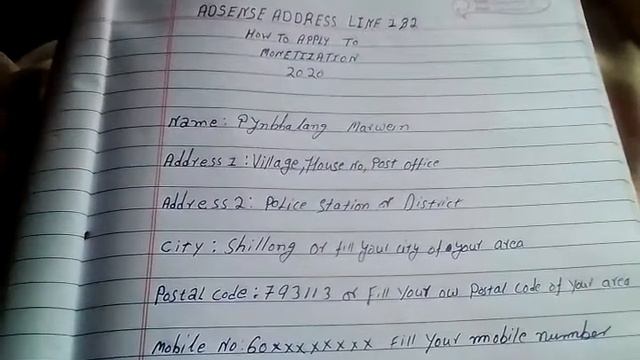 ADSENSE ADDRESS LINE 1&2
HOW TO APPLY TO
MONETIZATION
2020
Name: Pynbhalang Marwein
Address 1: Village, House No, Post office
Address 2: Police Station or District
City: Shillong or fill your city of your area
Postal code: 793113 or Fill Your ow Postal Code of Your area
Mobile No: 60xxxxxxxx Fill Your mobile number